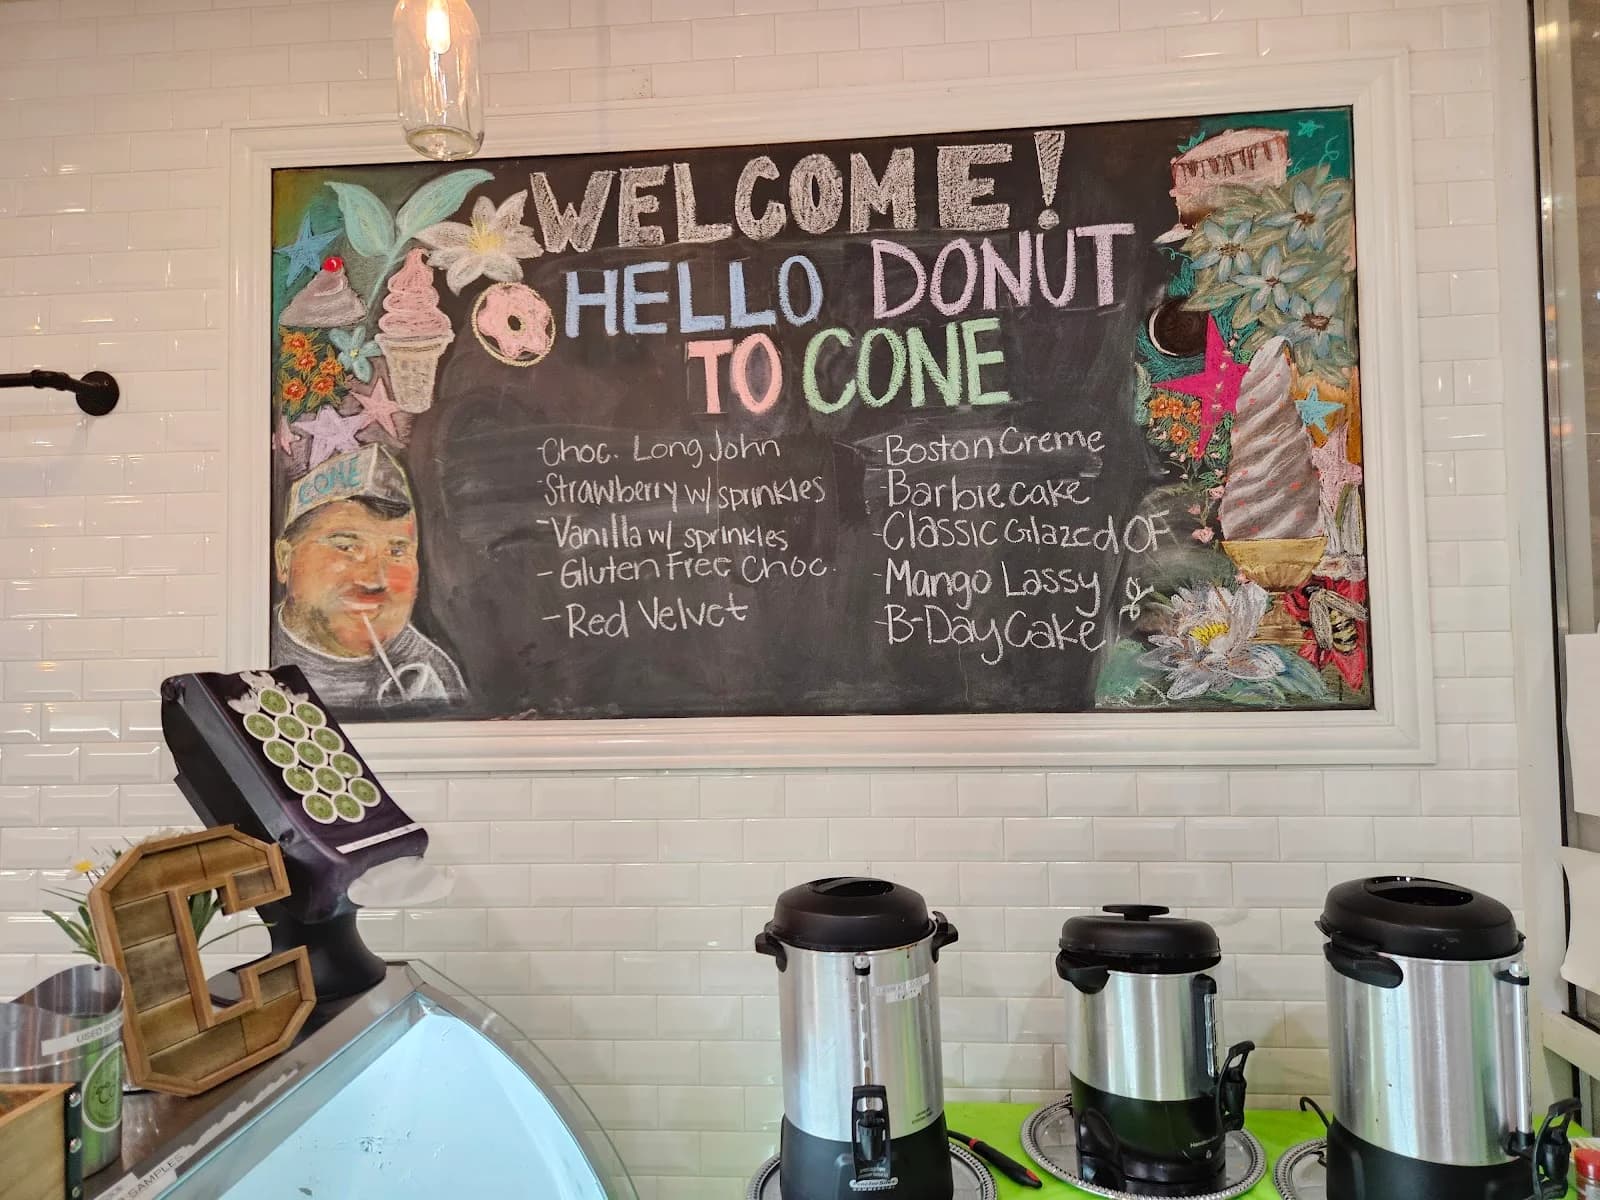 WELCOME!
HELLO DONUT
TO CONE
-Choc. Long John
-Strawberry w/ sprinkles
-Vanilla w/ sprinkles
-Gluten Free Choc.
-Red Velvet
-Boston Creme
-Barbie cake
-Classic Glazed OF
-Mango Lassy
-B-Day Cake
CONE
C
USED
SAMPLES